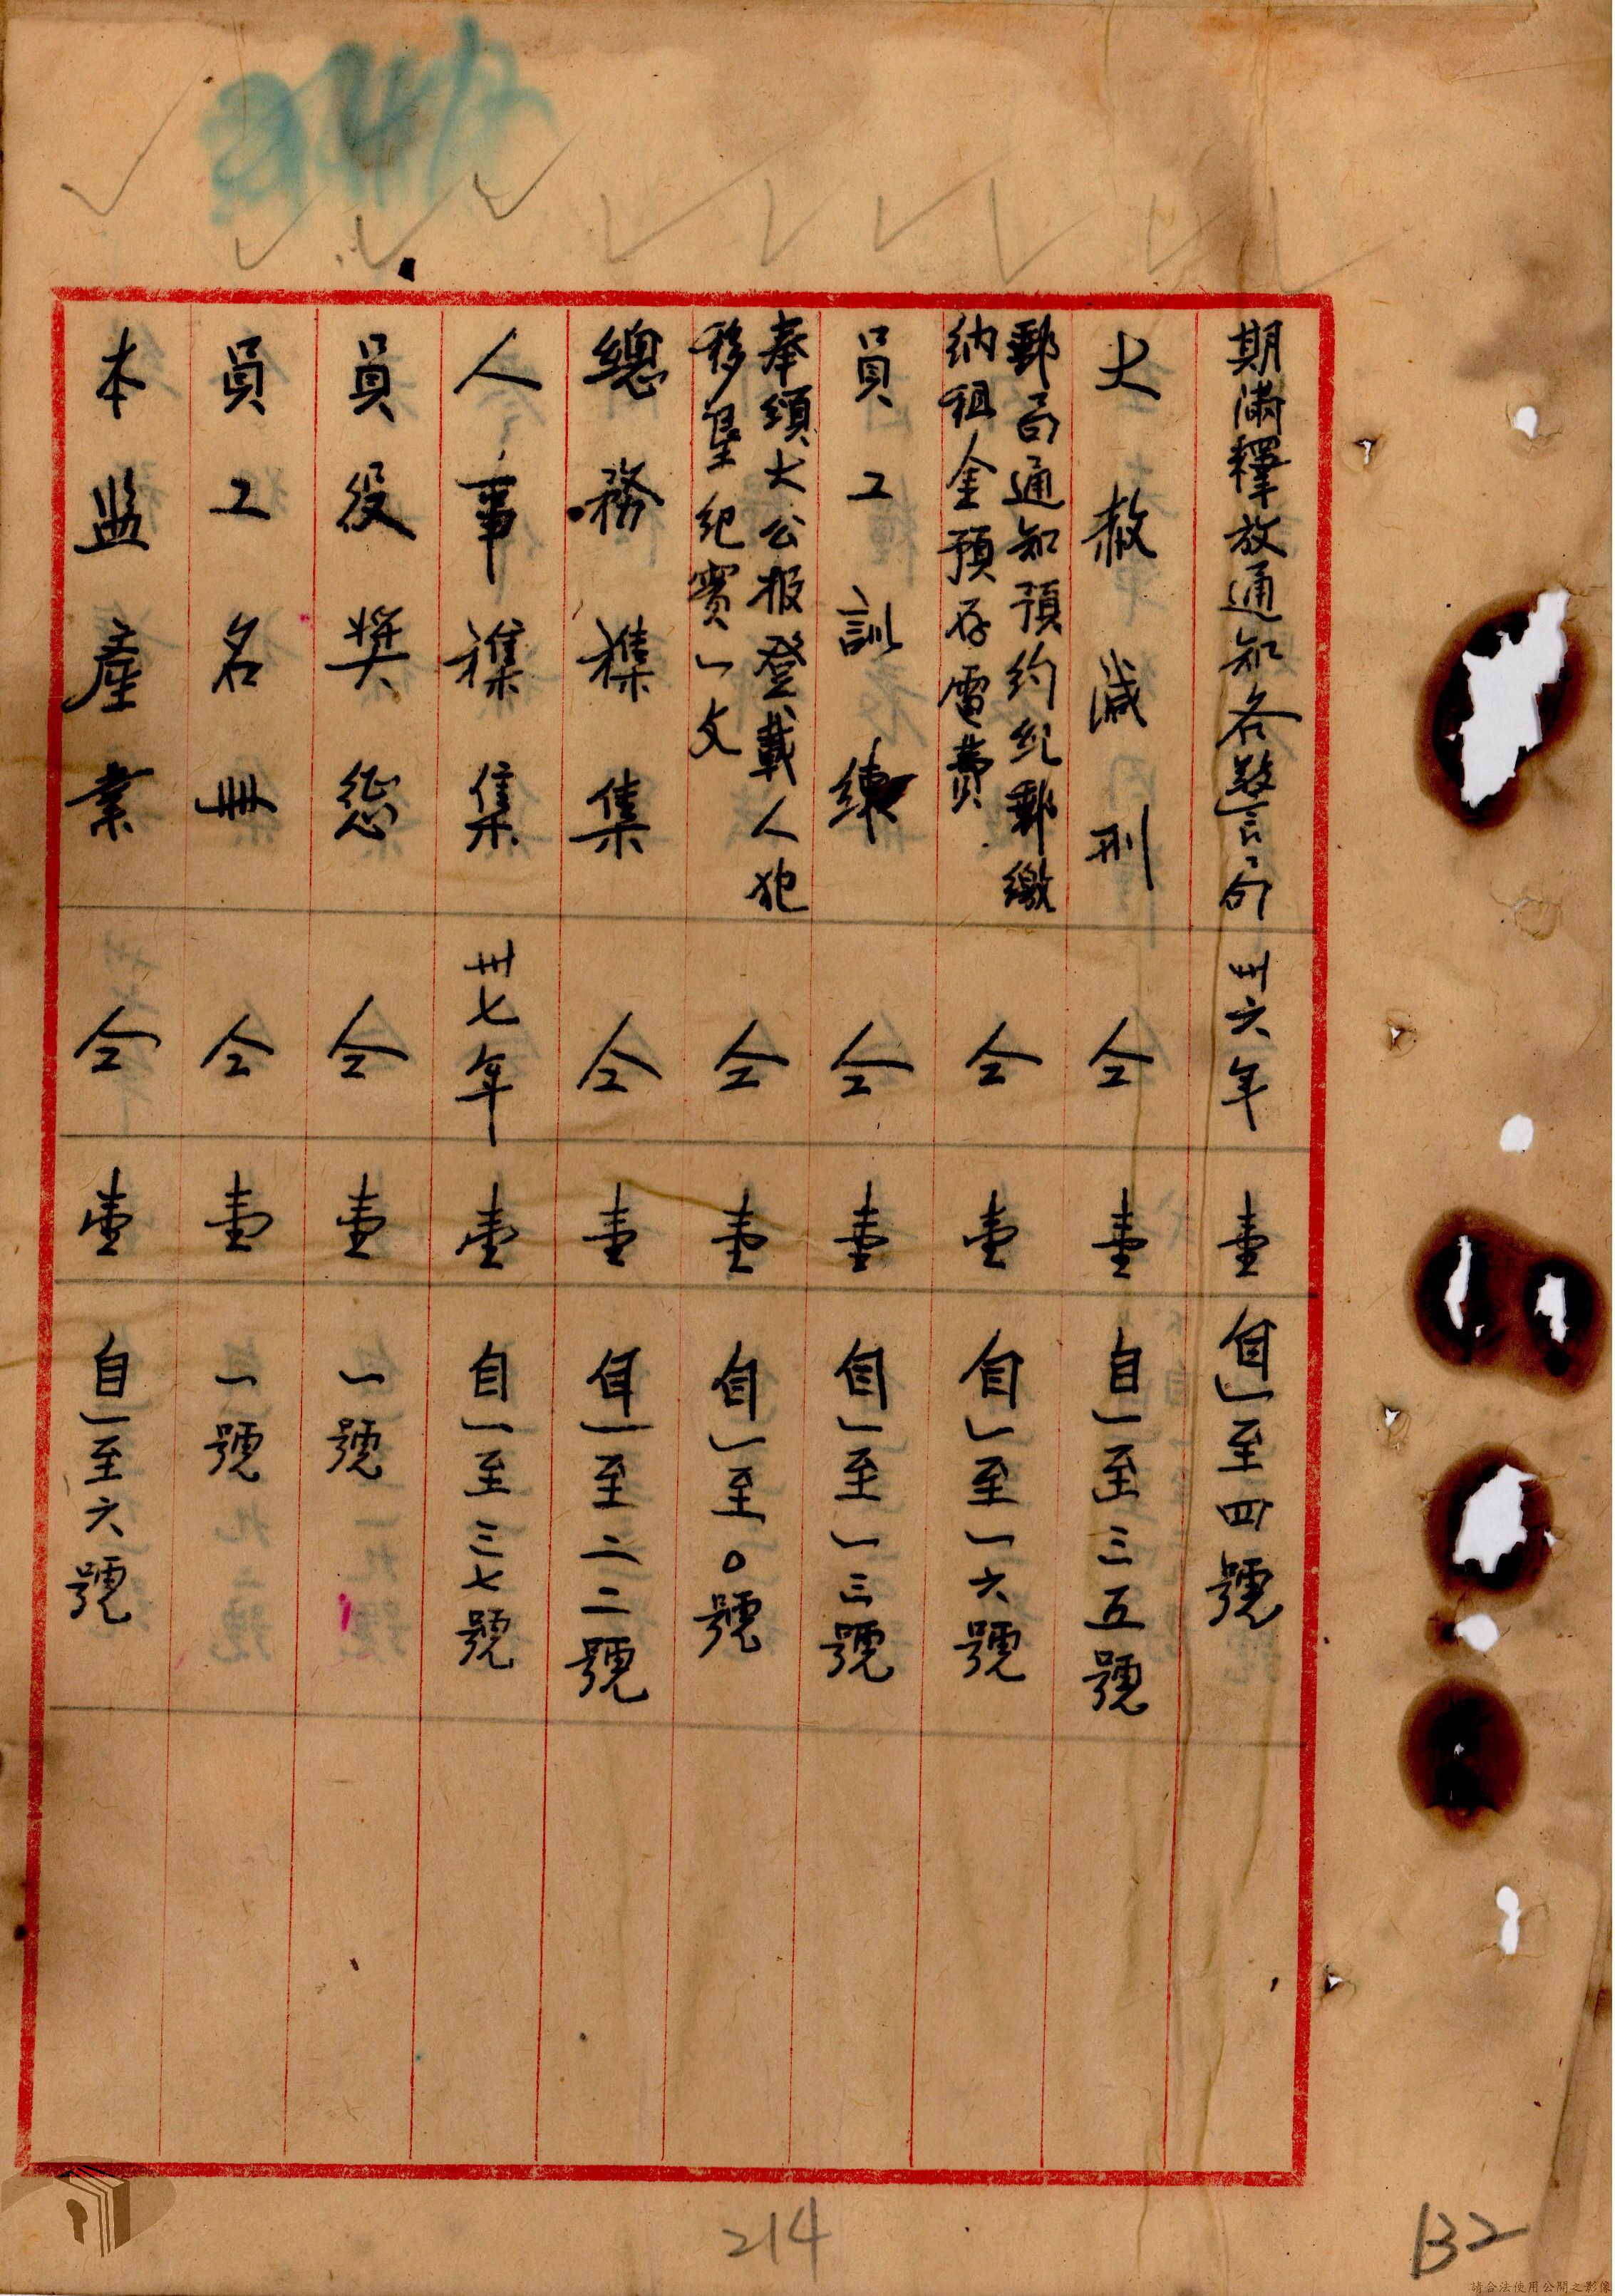 期滿釋放通知各警局 卅六年 壹 自一至四號
大赦減刑 仝 壹 自一至三五號
郵局通知預約紀郵繳
納租金預存電費 仝 壹 自一至一六號
員工訓練 仝 壹 自一至一三號
奉頒大公报登載人犯
移墾紀實一文 仝 壹 自一至〇號
總務雜集 仝 壹 自一至二二號
人事雜集 卅七年 壹 自一至三七號
員役奬懲 仝 壹 一號
員工名冊 仝 壹 一號
本监產業 仝 壹 自一至六號
214
132
請合法使用公開之影像